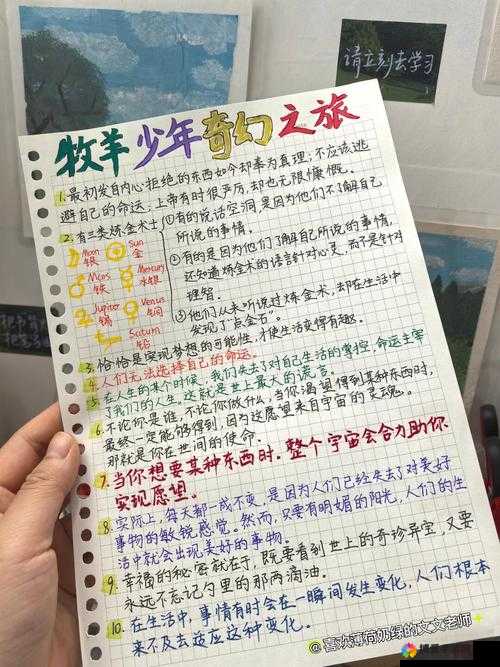 请立刻去学习
牧羊少年奇幻之旅
1. 最初发自内心拒绝的东西如今却奉为真理,不应该逃
避自己的命运,上帝有时很严厉,却也无限慷慨。
2. 有三类炼金术士
①有的说话空洞,是因为他们不了解自己
所说的事情。
②有的是因为他们了解自己所说的事情,
还知道炼金术的语言针对心灵,而不是针对
理智。
③他们从未听说过炼金术,却在生活中
发现了“点金石”。
Moon 银
Sun 金
Mars 铁
Mercury 水银
Jupiter 锡
Venus 铜
Saturn 铅
3. 恰恰是实现梦想的可能性,才使生活变得有趣。
4. 人们无法选择自己的命运。
5. 在人生的某个时候,我们失去了对自己生活的掌控,命运主宰
了我们的人生,这就是世上最大的谎言。
6. 不论你是谁,不论你做什么,当你渴望得到某种东西时,
最终一定能够得到,因为这愿望来自宇宙的灵魂。
那就是你在世间的使命。
7. 当你想要某种东西时,整个宇宙会合力助你
实现愿望。
8. 实际上,每天都一成不变,是因为人们已经失去了对美好
事物的敏锐感觉。然而,只要有明媚的阳光,人们的生
活中就会出现美好的事物。
9. 幸福的秘密就在于,既要看到世上的奇珍异宝,又要
永远不忘记勺里的那两滴油。
10. 在生活中,事情有时会在一瞬间发生变化,人们根本
来不及去适应这种变化。
@喜欢薄荷奶绿的文文老师